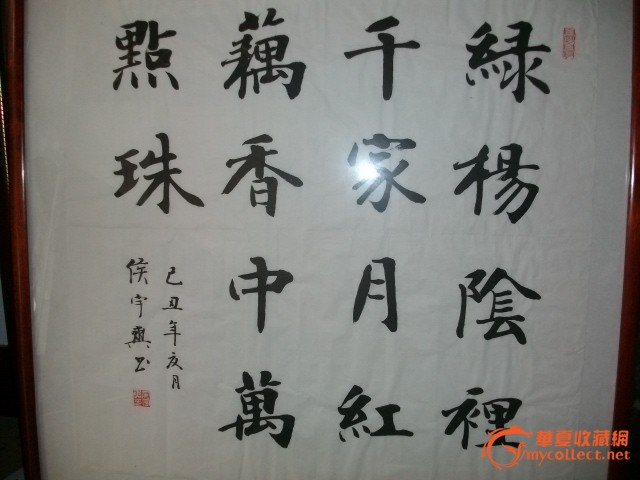 綠楊陰裡
千家月紅
藕香中萬
點珠
己丑年庆月
侯宇燕书
華夏收藏网
mycollect.net